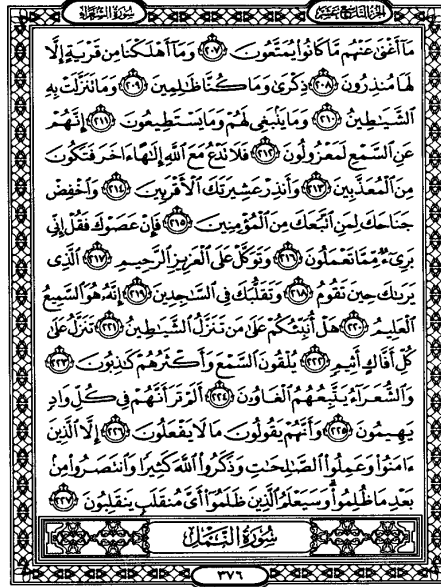 سُورَةُ الشُّعَرَاءِ الجُزْءُ التَّاسِعَ عَشَرَ
مَآ أَغْنَىٰ عَنْهُم مَّا كَانُوا۟ يُمَتَّعُونَ ﴿٢٠٧﴾ وَمَآ أَهْلَكْنَا مِن قَرْيَةٍ إِلَّا
لَهَا مُنذِرُونَ ﴿٢٠٨﴾ ذِكْرَىٰ وَمَا كُنَّا ظَٰلِمِينَ ﴿٢٠٩﴾ وَمَا تَنَزَّلَتْ بِهِ
ٱلشَّيَٰطِينُ ﴿٢١٠﴾ وَمَا يَنۢبَغِى لَهُمْ وَمَا يَسْتَطِيعُونَ ﴿٢١١﴾ إِنَّهُمْ
عَنِ ٱلسَّمْعِ لَمَعْزُولُونَ ﴿٢١٢﴾ فَلَا تَدْعُ مَعَ ٱللَّهِ إِلَٰهًا ءَاخَرَ فَتَكُونَ
مِنَ ٱلْمُعَذَّبِينَ ﴿٢١٣﴾ وَأَنذِرْ عَشِيرَتَكَ ٱلْأَقْرَبِينَ ﴿٢١٤﴾ وَٱخْفِضْ
جَنَاحَكَ لِمَنِ ٱتَّبَعَكَ مِنَ ٱلْمُؤْمِنِينَ ﴿٢١٥﴾ فَإِنْ عَصَوْكَ فَقُلْ إِنِّى
بَرِىٓءٌ مِّمَّا تَعْمَلُونَ ﴿٢١٦﴾ وَتَوَكَّلْ عَلَى ٱلْعَزِيزِ ٱلرَّحِيمِ ﴿٢١٧﴾ ٱلَّذِى
يَرَىٰكَ حِينَ تَقُومُ ﴿٢١٨﴾ وَتَقَلُّبَكَ فِى ٱلسَّٰجِدِينَ ﴿٢١٩﴾ إِنَّهُۥ هُوَ ٱلسَّمِيعُ
ٱلْعَلِيمُ ﴿٢٢٠﴾ هَلْ أُنَبِّئُكُمْ عَلَىٰ مَن تَنَزَّلُ ٱلشَّيَٰطِينُ ﴿٢٢١﴾ تَنَزَّلُ عَلَىٰ
كُلِّ أَفَّاكٍ أَثِيمٍ ﴿٢٢٢﴾ يُلْقُونَ ٱلسَّمْعَ وَأَكْثَرُهُمْ كَٰذِبُونَ ﴿٢٢٣﴾
وَٱلشُّعَرَآءُ يَتَّبِعُهُمُ ٱلْغَاوُۥنَ ﴿٢٢٤﴾ أَلَمْ تَرَ أَنَّهُمْ فِى كُلِّ وَادٍ
يَهِيمُونَ ﴿٢٢٥﴾ وَأَنَّهُمْ يَقُولُونَ مَا لَا يَفْعَلُونَ ﴿٢٢٦﴾ إِلَّا ٱلَّذِينَ
ءَامَنُوا۟ وَعَمِلُوا۟ ٱلصَّٰلِحَٰتِ وَذَكَرُوا۟ ٱللَّهَ كَثِيرًا وَٱنتَصَرُوا۟ مِنۢ
بَعْدِ مَا ظُلِمُوا۟ وَسَيَعْلَمُ ٱلَّذِينَ ظَلَمُوٓا۟ أَىَّ مُنقَلَبٍ يَنقَلِبُونَ ﴿٢٢٧﴾
سُورَةُ النَّمْلِ
٣٧٦